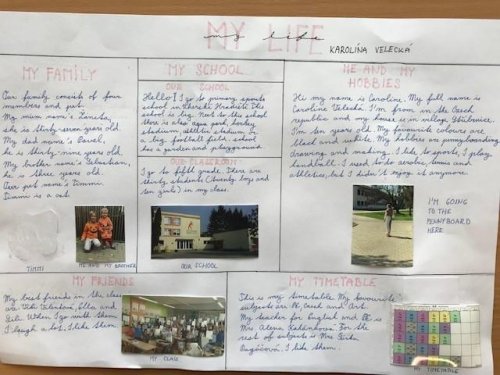 MY LIFE
my life
KAROLÍNA VELECKÁ
MY FAMILY
Our family consists of four
members and pet.
My mum name's Žaneta,
she is thirty-seven years old.
My dad name's Pavel,
he is thirty-nine years old.
My brother name's Sebastian,
he is three years old.
Our pet name's Timmi.
Timmi is a cat.
TIMMI
ME AND MY BROTHER
MY SCHOOL
OUR SCHOOL
Hello! I go to primary sports
school in The
school is big. Next to the school
there is also aqua park, hockey
stadium, athletic stadium. In
a big football field. school
has a garden and playground.
OUR CLASSROOM
I go to fifth grade. There are
thirty students (twenty boys and
ten girls) in my class.
OUR SCHOOL
ME AND MY
HOBBIES
Hi my name is Caroline. My full name is
Caroline Velecká. I'm from in the Czech
republic and my house is in village
I'm ten years old. My favourite colours are
black and white. My hobbies are pennyboarding,
drawing and making. I like to sports, I play
handball. I used to do aerobic, tennis and
athletics, but I didn't enjoy it anymore.
I'M GOING
TO THE
PENNYBOARD
HERE
MY FRIENDS
My best friends in the class
are Viki Ella and
with them
I laugh a lot. I like them.
MY CLASS
MY TIMETABLE
This is my timetable. My favourite
subjects are PE, Czech and Art.
My teacher for English and PE is
Mrs Alena For the
rest of subjects is Mrs
I like them.
MY TIMETABLE